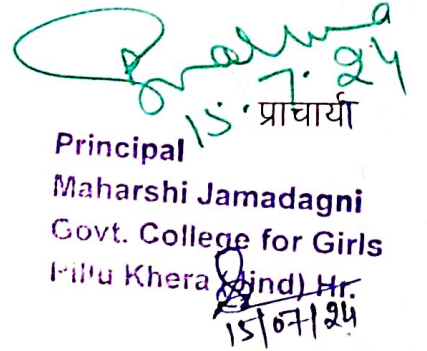 15.7.24
प्राचार्या
Principal
Maharshi Jamadagni
Govt. College for Girls
Pillu Khera (Jind) Hr.
15/07/24